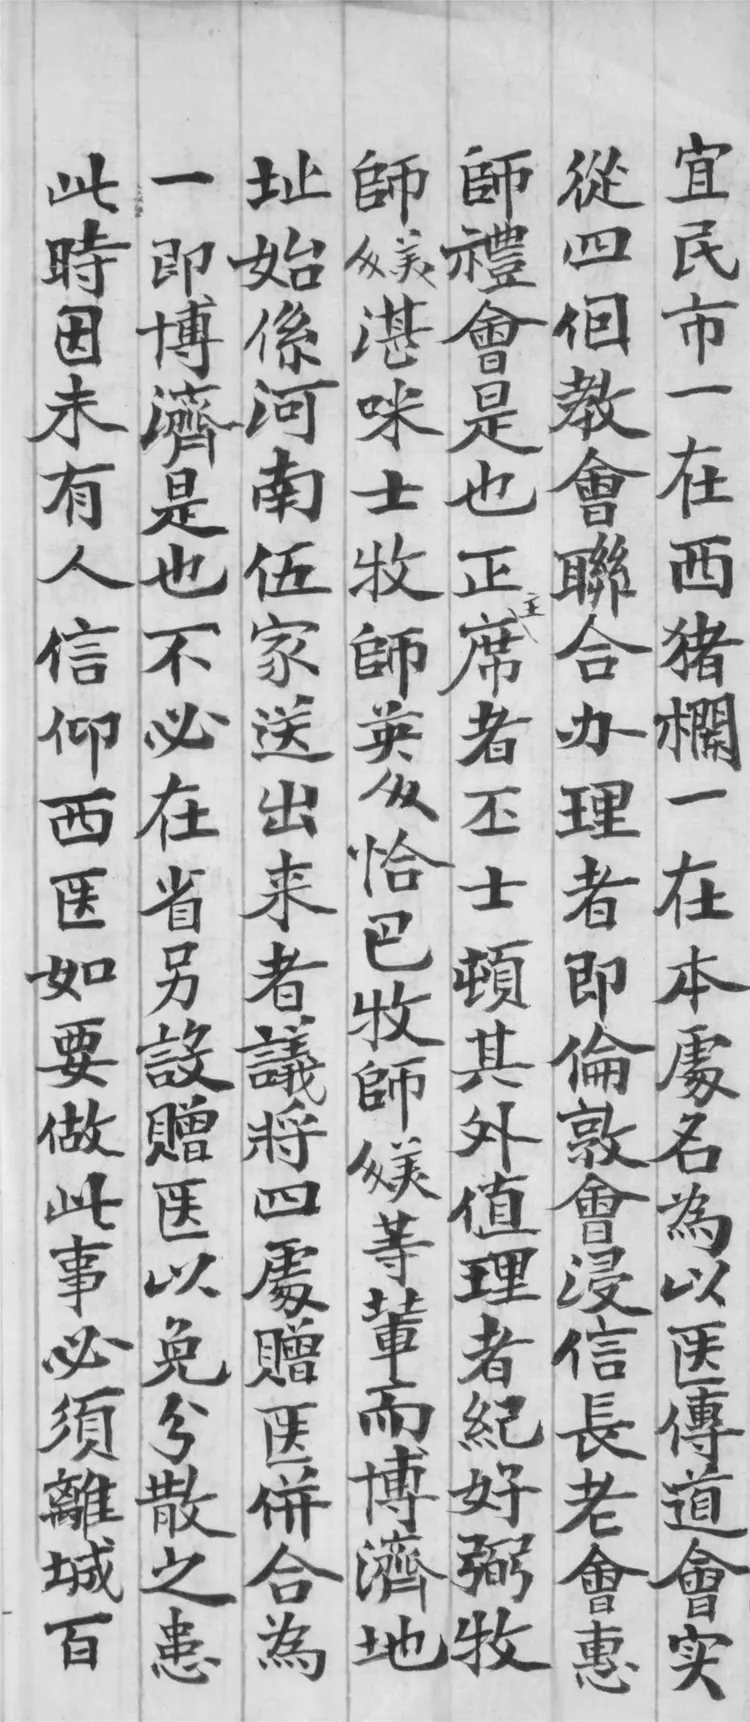 宜民市一在西猪欄一在本處名為以医傳道會实
從四個教會聯合办理者即倫敦會浸信長老會惠
師禮會是也正主席者丕士頓其外值理者紀好弼牧
師 湛咪士牧師英 恰巴牧師 等輩而博濟地
址始係河南伍家送出来者議將四處贈医併合為
一即博濟是也不必在省另設贈医以免分散之患
此時因未有人信仰西医如要做此事必須離城百